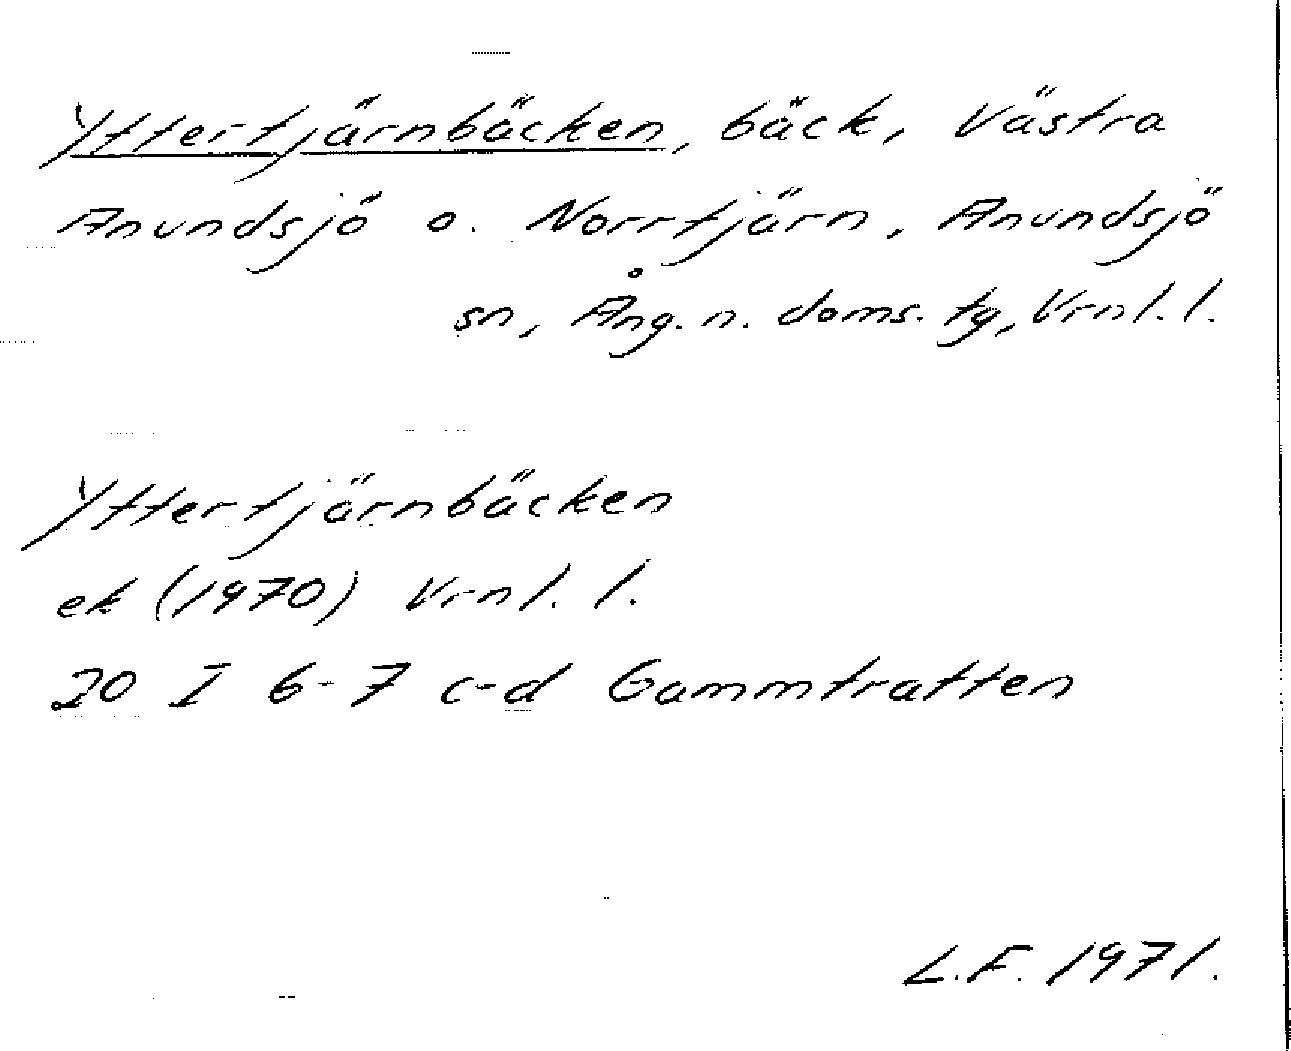 Yttertjärnbäcken, bäck, Västra
Anundsjö o. Norrtjärn, Anundsjö
sn, Ång. n. doms. tg, Vrnl. l.
Yttertjärnbäcken
ek (1970) Vrnl. l.
20 I 6-7 c-d Gammtratten
L.F. 1971.